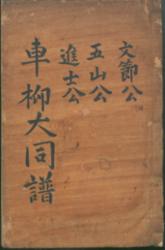 文節公
五山公
進士公
車柳大同譜